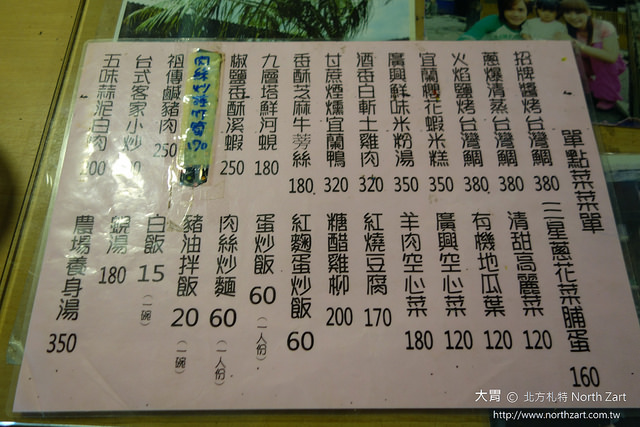 單點菜菜單
招牌醬烤台灣鯛 380
蔥爆清蒸台灣鯛 380
火焰鹽烤台灣鯛 380
宜蘭櫻花蝦米糕 350
廣興鮮味米粉湯 350
酒香白斬土雞肉 320
甘蔗煙燻宜蘭鴨 320
香酥芝麻牛蒡絲 180
九層塔鮮河蜆 180
椒鹽香酥溪蝦 250
肉絲炒 170
祖傳鹹豬肉 250
台式客家小炒
五味蒜泥白肉
三星蔥花菜脯蛋 160
清甜高麗菜 120
有機地瓜葉 120
廣興空心菜 120
羊肉空心菜 180
紅燒豆腐 170
糖醋雞柳 200
紅麴蛋炒飯 60
蛋炒飯 60 (一人份)
肉絲炒麵 60 (一人份)
豬油拌飯 20 (一碗)
白飯 15 (一碗)
蜆湯 180
農場養身湯 350
大胃 © 北方札特 North Zart
http://www.northzart.com.tw